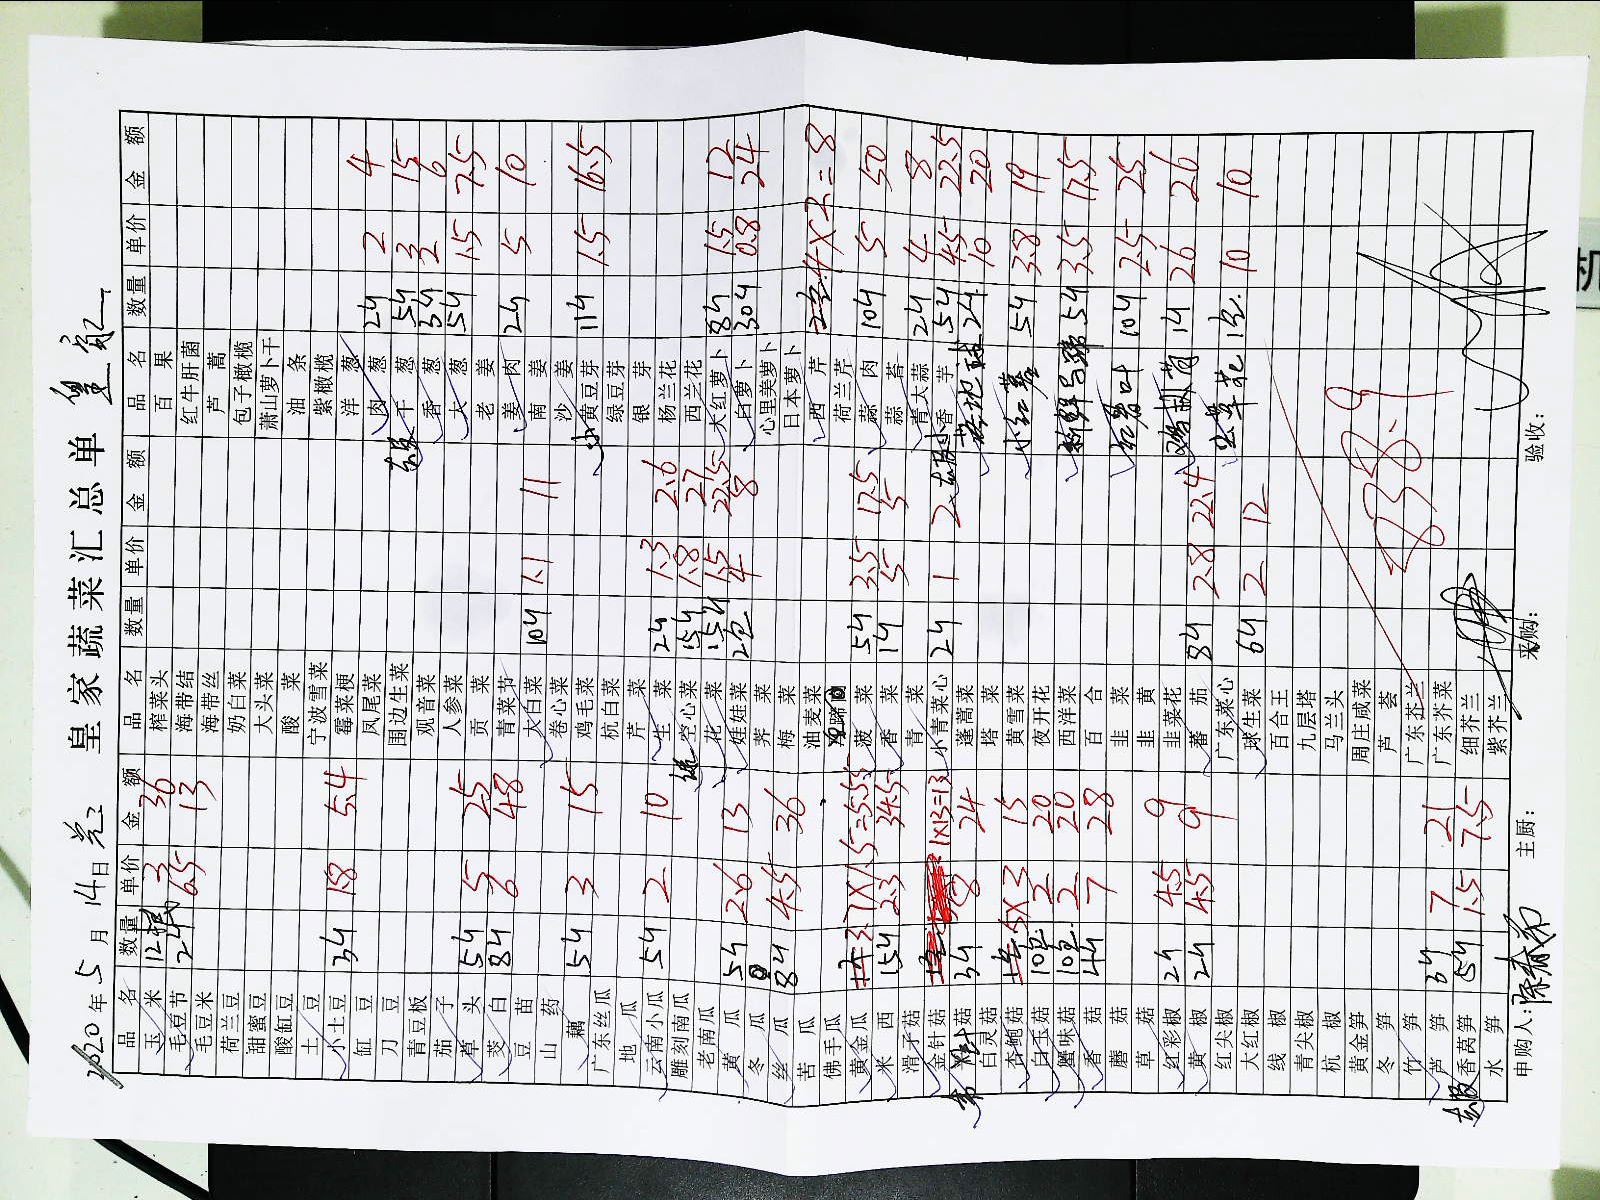 皇家蔬菜汇总单
2020年5月14日
品名 数量 单价 金额 品名 数量 单价 金额 品名 数量 单价 金额
玉米 12根 3 36 榨菜头 百果
毛豆节 2斤 6.5 13 海带结 红牛肝菌
毛豆米 海带丝 芦蒿
荷兰豆 奶白菜 包子橄榄
甜蜜豆 大头菜 萧山萝卜干
酸缸豆 酸菜 油条
土豆 宁波雪菜 紫橄榄
小土豆 3斤 1.8 5.4 霉菜梗 洋葱
缸豆 凤尾菜 肉葱 2斤 2 4
刀豆 围边生菜 干葱 5斤 3 15
青豆板 观音菜 香葱 3斤 2 6
茄子 人参菜 大葱 5斤 1.5 7.5
草头 5斤 5 25 贡菜 老姜
茭白 8斤 6 48 青菜节 姜肉 2斤 5 10
豆苗 大白菜 10斤 1.1 11 南姜
山药 卷心菜 沙姜
藕 5斤 3 15 鸡毛菜 小黄豆芽 11斤 1.5 16.5
广东丝瓜 杭白菜 绿豆芽
地瓜 芹菜 银芽
云南小瓜 5斤 2 10 生菜 2斤 1.3 2.6 杨兰花
雕刻南瓜 空心菜 15斤 1.8 27 西兰花
老南瓜 花菜 15斤 1.5 22.5 大红萝卜 8斤 1.5 12
黄瓜 5斤 2.6 13 娃娃菜 2包 4 8 白萝卜 30斤 0.8 24
冬瓜 荠菜 心里美萝卜
丝瓜 8斤 4.5 36 梅菜 日本萝卜
苦瓜 油麦菜 西芹 4X2=8
佛手瓜 荷兰芹
黄金瓜 3.7X1.5=5.55 菠菜 5斤 3.5 17.5 蒜肉 10斤 5 50
米西 15斤 2.3 34.5 香菜 1斤 5 5 蒜苔
滑子菇 青菜 青大蒜 2斤 4 8
金针菇 1X13=13 小青菜心 2斤 1 2 香芋 5斤 4.5 22.5
菇 3斤 8 24 蓬蒿菜 2斤 10 20
白灵菇 塔菜
杏鲍菇 5X3 15 黄雪菜 小红薯 5斤 3.8 19
白玉菇 10包 2 20 夜开花
蟹味菇 10包 2 20 西洋菜 新鲜马蹄 5斤 3.5 17.5
香菇 4斤 7 28 百合
蘑菇 韭菜 红薯叶 10斤 2.5 25
草菇 韭黄
红彩椒 2斤 4.5 9 韭菜花 1斤 26 26
黄椒 2斤 4.5 9 番茄 8斤 2.8 22.4
红尖椒 广东菜心 虫草花 1包 10 10
大红椒 球生菜 6斤 2 12
线椒 百合王
青尖椒 九层塔
杭椒 马兰头
黄金笋 周庄咸菜
冬笋 芦荟
竹笋 广东芥兰
芦笋 3斤 7 21 广东芥菜
香莴笋 5斤 1.5 7.5 细芥兰
水笋 紫芥兰
申购人: 主厨: 采购: 验收: